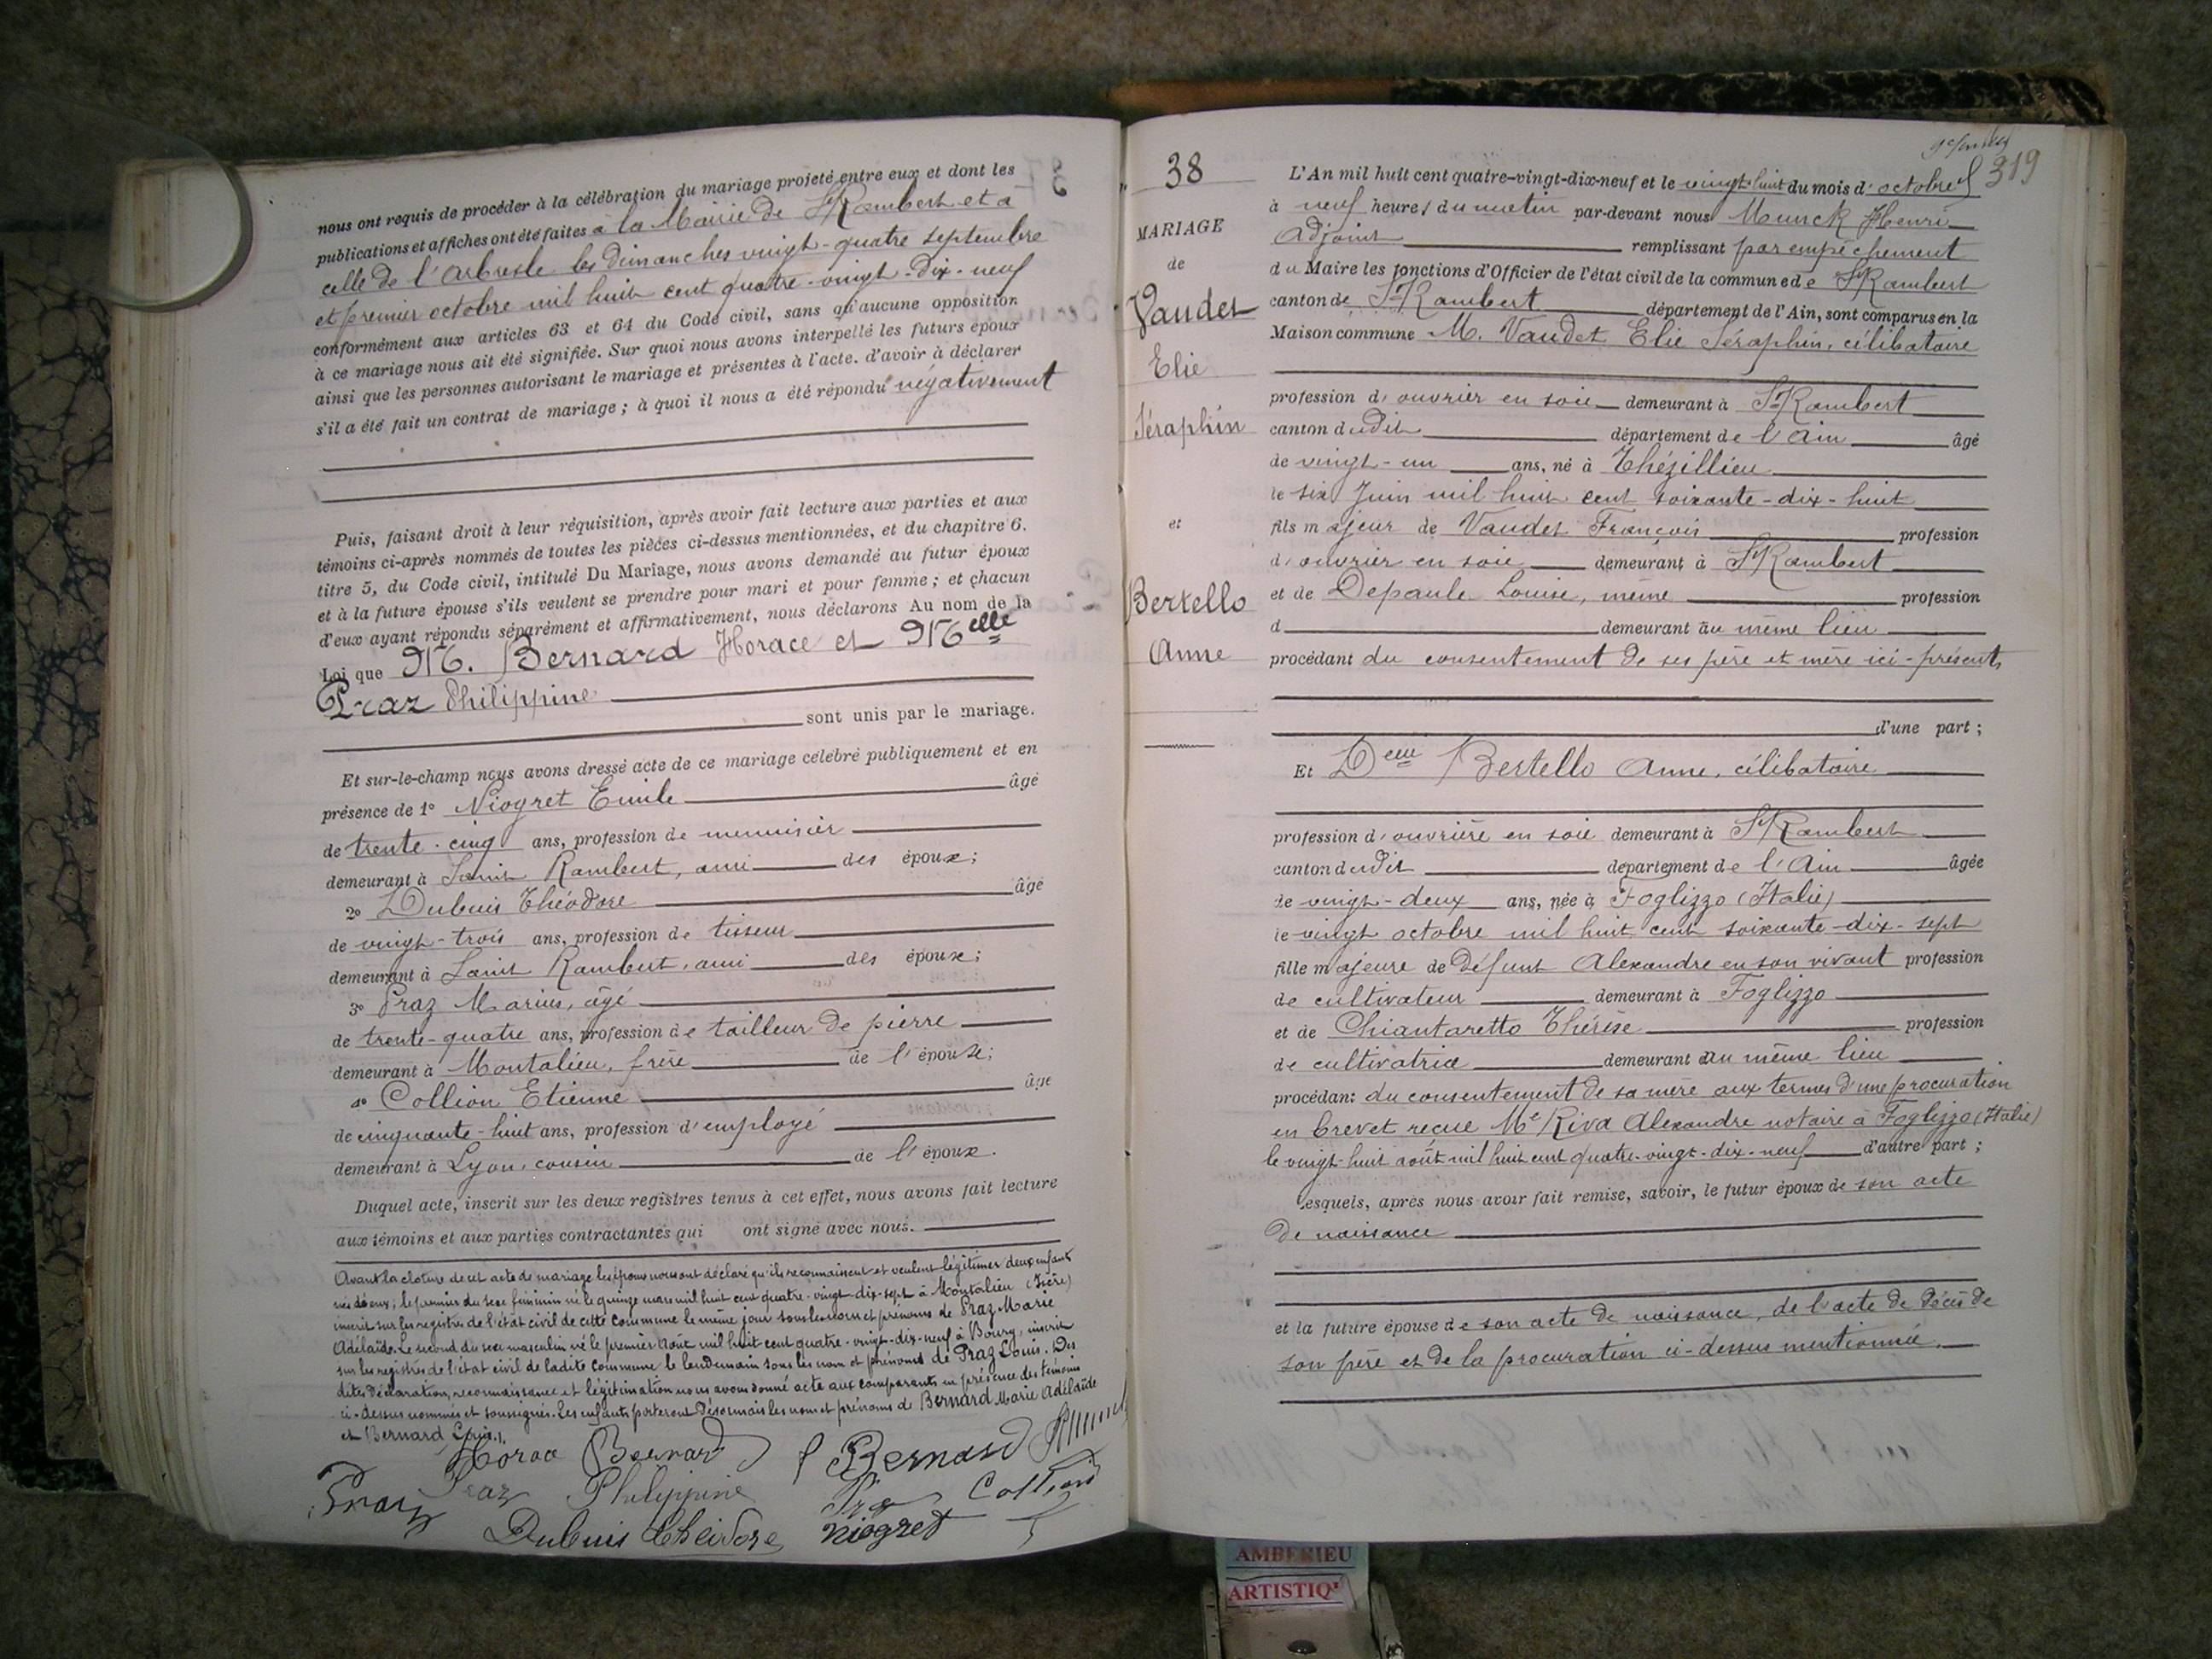 nous ont requis de procéder à la célébration du mariage projeté entre eux et dont les
publications et affiches ont été faites à la Mairie de St Rambert et à
celle de l'Arbresle les dimanches vingt-quatre septembre
et premier octobre mil huit cent quatre-vingt-dix-neuf
conformément aux articles 63 et 64 du Code civil, sans qu'aucune opposition
à ce mariage nous ait été signifiée. Sur quoi nous avons interpellé les futurs époux
ainsi que les personnes autorisant le mariage et présentes à l'acte. d'avoir à déclarer
s'il a été fait un contrat de mariage ; à quoi il nous a été répondu négativement
Puis, faisant droit à leur réquisition, après avoir fait lecture aux parties et aux
témoins ci-après nommés de toutes les pièces ci-dessus mentionnées, et du chapitre 6.
titre 5, du Code civil, intitulé Du Mariage, nous avons demandé au futur époux
et à la future épouse s'ils veulent se prendre pour mari et pour femme ; et chacun
d'eux ayant répondu séparément et affirmativement, nous déclarons Au nom de la
Loi que M. Bernard Horace et Melle
Praz Philippine
sont unis par le mariage.
Et sur-le-champ nous avons dressé acte de ce mariage célébré publiquement et en
présence de 1o Niogret Emile âgé
de trente-cinq ans, profession de menuisier
demeurant à Saint Rambert, ami des époux ;
2o Dubuis Théodore âgé
de vingt-trois ans, profession de tisseur
demeurant à Saint Rambert, ami des époux ;
3o Praz Marius, âgé
de trente-quatre ans, profession de tailleur de pierre
demeurant à Montalieu, frère de l'épouse ;
4o Collion Etienne âgé
de cinquante-huit ans, profession d'employé
demeurant à Lyon, cousin de l'époux.
Duquel acte, inscrit sur les deux registres tenus à cet effet, nous avons fait lecture
aux témoins et aux parties contractantes qui ont signé avec nous.
Avant la cloture de cet acte de mariage les époux nous ont déclaré qu'ils reconnaissent et veulent légitimer deux enfants
nés d'eux ; le premier du sexe féminin né le quinze mars mil huit cent quatre-vingt-dix-sept à Montalieu (Isère)
inscrit sur les registres de l'état civil de cette commune le même jour sous les nom et prénoms de Praz Marie
Adélaïde. Le second du sexe masculin né le premier août mil huit cent quatre-vingt-dix-neuf à Bourg, inscrit
sur les registres de l'état civil de ladite commune le lendemain sous les nom et prénoms de Praz Louis. Des
dites déclaration, reconnaissance et légitimation nous avons donné acte aux comparants en présence des témoins
ci-dessus nommés et soussignés. Les enfants porteront désormais les nom et prénoms de Bernard Marie Adélaïde
et Bernard Louis.
Horace Bernard Bernard
Praz Praz Philippine Praz Collion
Dubuis Théodore Niogret
319
38
MARIAGE
de
Vaudet
Elie
Séraphin
et
Bertello
Anne
L'An mil huit cent quatre-vingt-dix-neuf et le vingt-huit du mois d'octobre
à neuf heures du matin par-devant nous Munck Henri
Adjoint remplissant par empêchement
du Maire les fonctions d'Officier de l'état civil de la commune de St Rambert
canton de St Rambert département de l'Ain, sont comparus en la
Maison commune M. Vaudet Elie Séraphin, célibataire
profession d'ouvrier en soie demeurant à St Rambert
canton dudit département de l'Ain âgé
de vingt-un ans, né à Thézillieu
le six Juin mil huit cent soixante-dix-huit
fils majeur de Vaudet François profession
d'ouvrier en soie demeurant à St Rambert
et de Depaule Louise, même profession
d demeurant au même lieu
procédant du consentement de ses père et mère ici-présents
d'une part ;
Et Delle Bertello Anne, célibataire
profession d'ouvrière en soie demeurant à St Rambert
canton dudit département de l'Ain âgée
de vingt-deux ans, née à Foglizzo (Italie)
le vingt octobre mil huit cent soixante-dix-sept
fille majeure de défunt Alexandre en son vivant profession
de cultivateur demeurant à Foglizzo
et de Chiantaretto Thérèse profession
de cultivatrice demeurant au même lieu
procédant du consentement de sa mère aux termes d'une procuration
en brevet reçue Me Riva Alexandre notaire à Foglizzo (Italie)
le vingt-huit août mil huit cent quatre-vingt-dix-neuf d'autre part ;
lesquels, après nous avoir fait remise, savoir, le futur époux de son acte
de naissance
et la future épouse de son acte de naissance, de l'acte de décès de
son père et de la procuration ci-dessus mentionnée.
AMBERIEU
ARTISTIQ